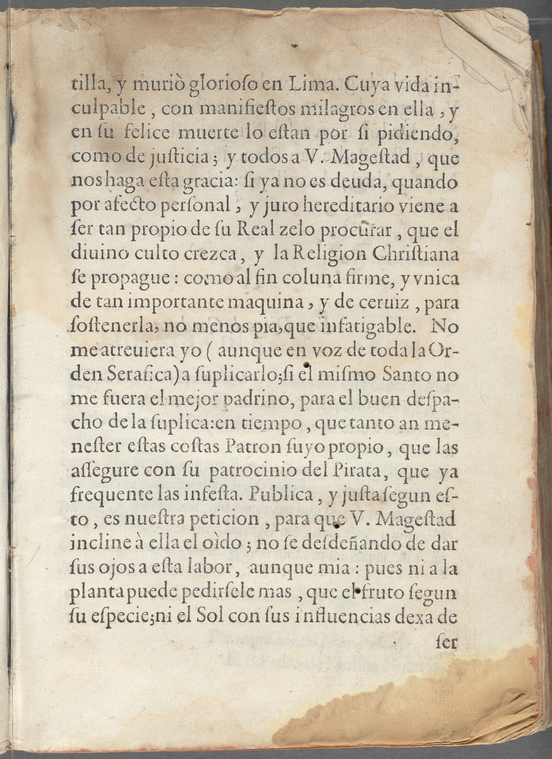 tilla, y muriò glorioſo en Lima. Cuya vida in-
culpable, con manifieſtos milagros en ella, y
en ſu felice muerte lo eſtan por ſi pidiendo,
como de juſticia; y todos a V. Mageſtad, que
nos haga eſta gracia: ſi ya no es deuda, quando
por afecto perſonal, y juro hereditario viene a
ſer tan propio de ſu Real zelo procurar, que el
diuino culto crezca, y la Religion Chriſtiana
ſe propague: como al fin coluna firme, y vnica
de tan importante maquina, y de ceruiz, para
ſoſtenerla, no menos pia, que infatigable. No
me atreuiera yo (aunque en voz de toda la Or-
den Serafica) a ſuplicarlo; ſi el miſmo Santo no
me fuera el mejor padrino, para el buen deſpa-
cho de la ſuplica: en tiempo, que tanto an me-
neſter eſtas coſtas Patron ſuyo propio, que las
aſſegure con ſu patrocinio del Pirata, que ya
frequente las infeſta. Publica, y juſta ſegun eſ-
to, es nueſtra peticion, para que V. Mageſtad
incline à ella el oìdo; no ſe deſdeñando de dar
ſus ojos a eſta labor, aunque mia: pues ni a la
planta puede pedirſele mas, que el fruto ſegun
ſu eſpecie; ni el Sol con ſus influencias dexa de
ſer